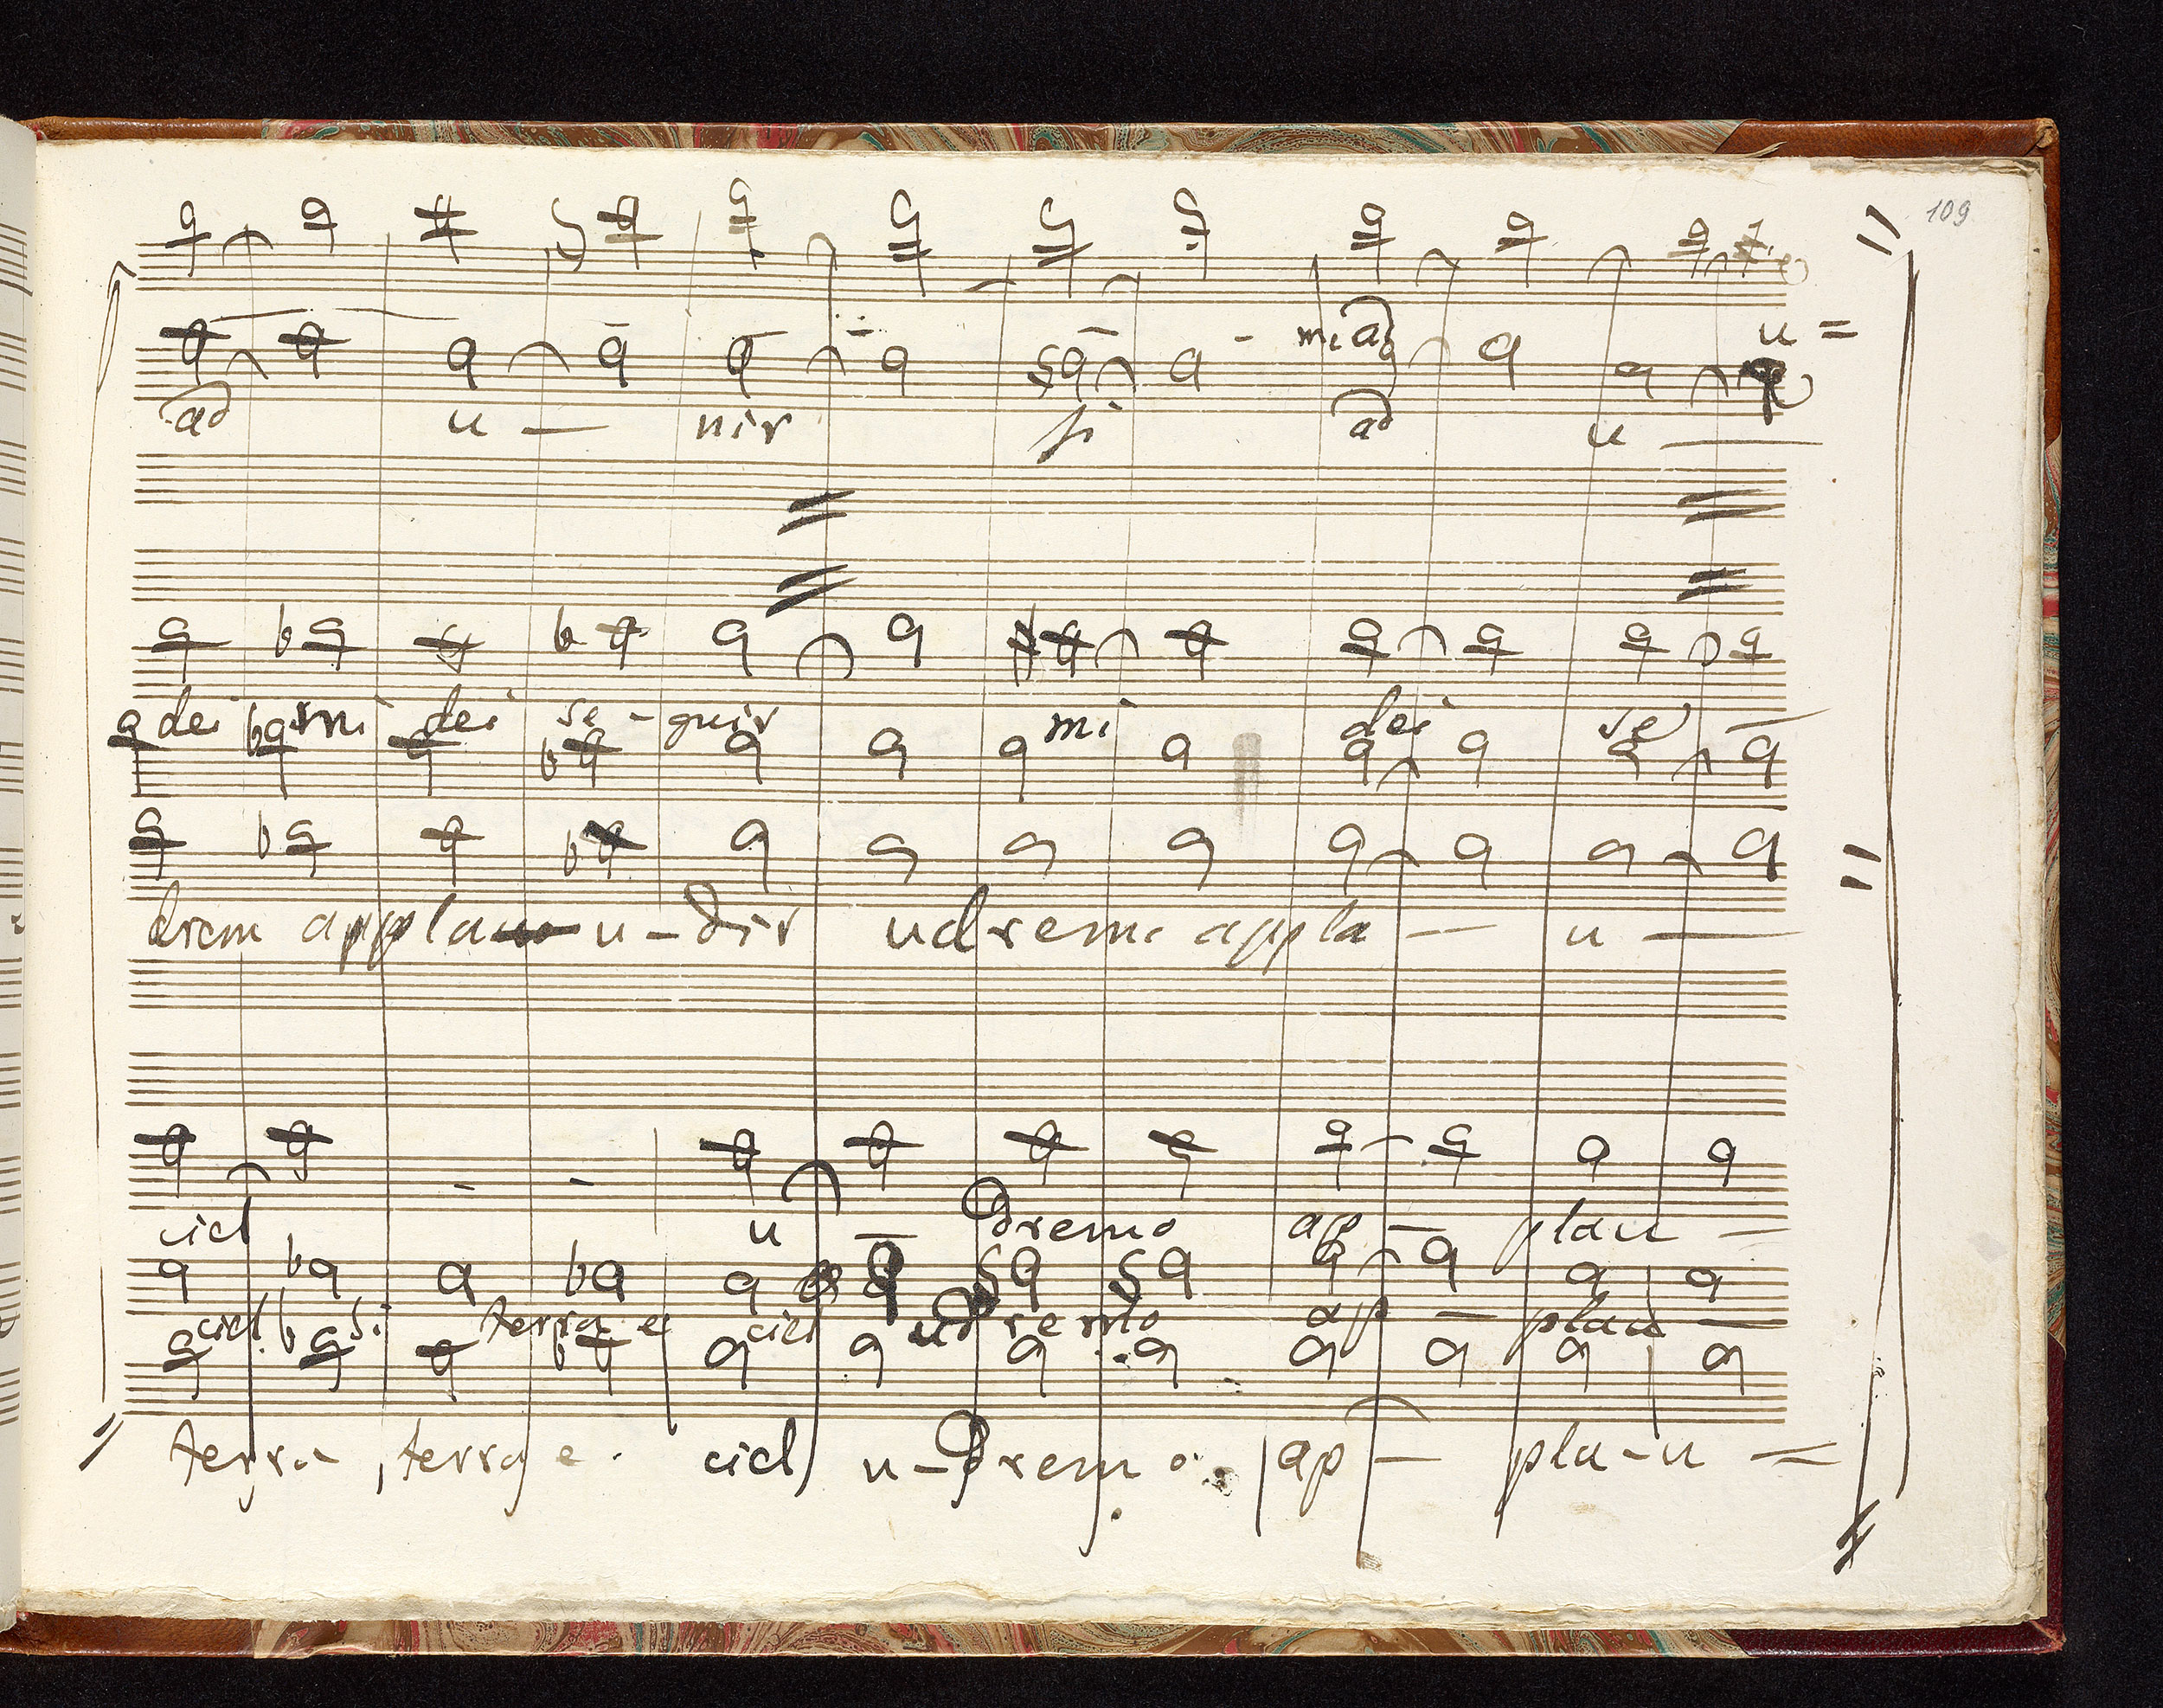 109
mi ad u =
ad u — nir si ad u —
dei mi dei se - guir mi dei se —
drem applau u - dir udremo appla — u —
ciel u — dremo ap — plau —
ciel si terra e ciel udremo ap — plau —
terra, terra e ciel u - dremo ap — pla - u =